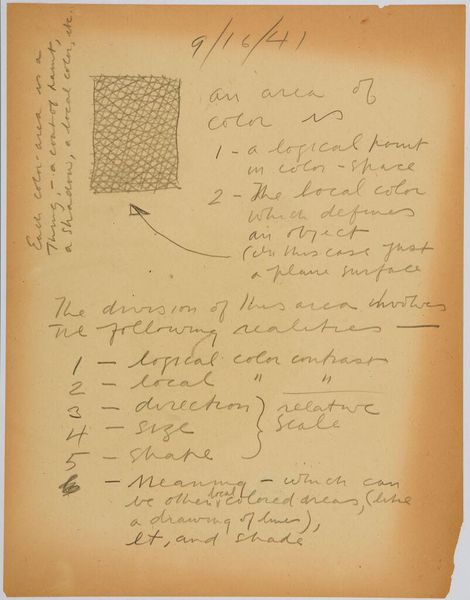 9/16/41
Each color-area is a
thing - a coat of paint,
a shadow, a local color, etc.
an area of
color is
1 - a logical point
in color-space
2 - The local color
which defines
an object
(in this case just
a plane surface
The division of this area involves
the following realities —
1 - logical color contrast
2 - local " "
3 - direction } relative
4 - size } scale
5 - shape }
6 - Meaning - which can
be other local colored areas, (like
a drawing of lines),
lt, and shade